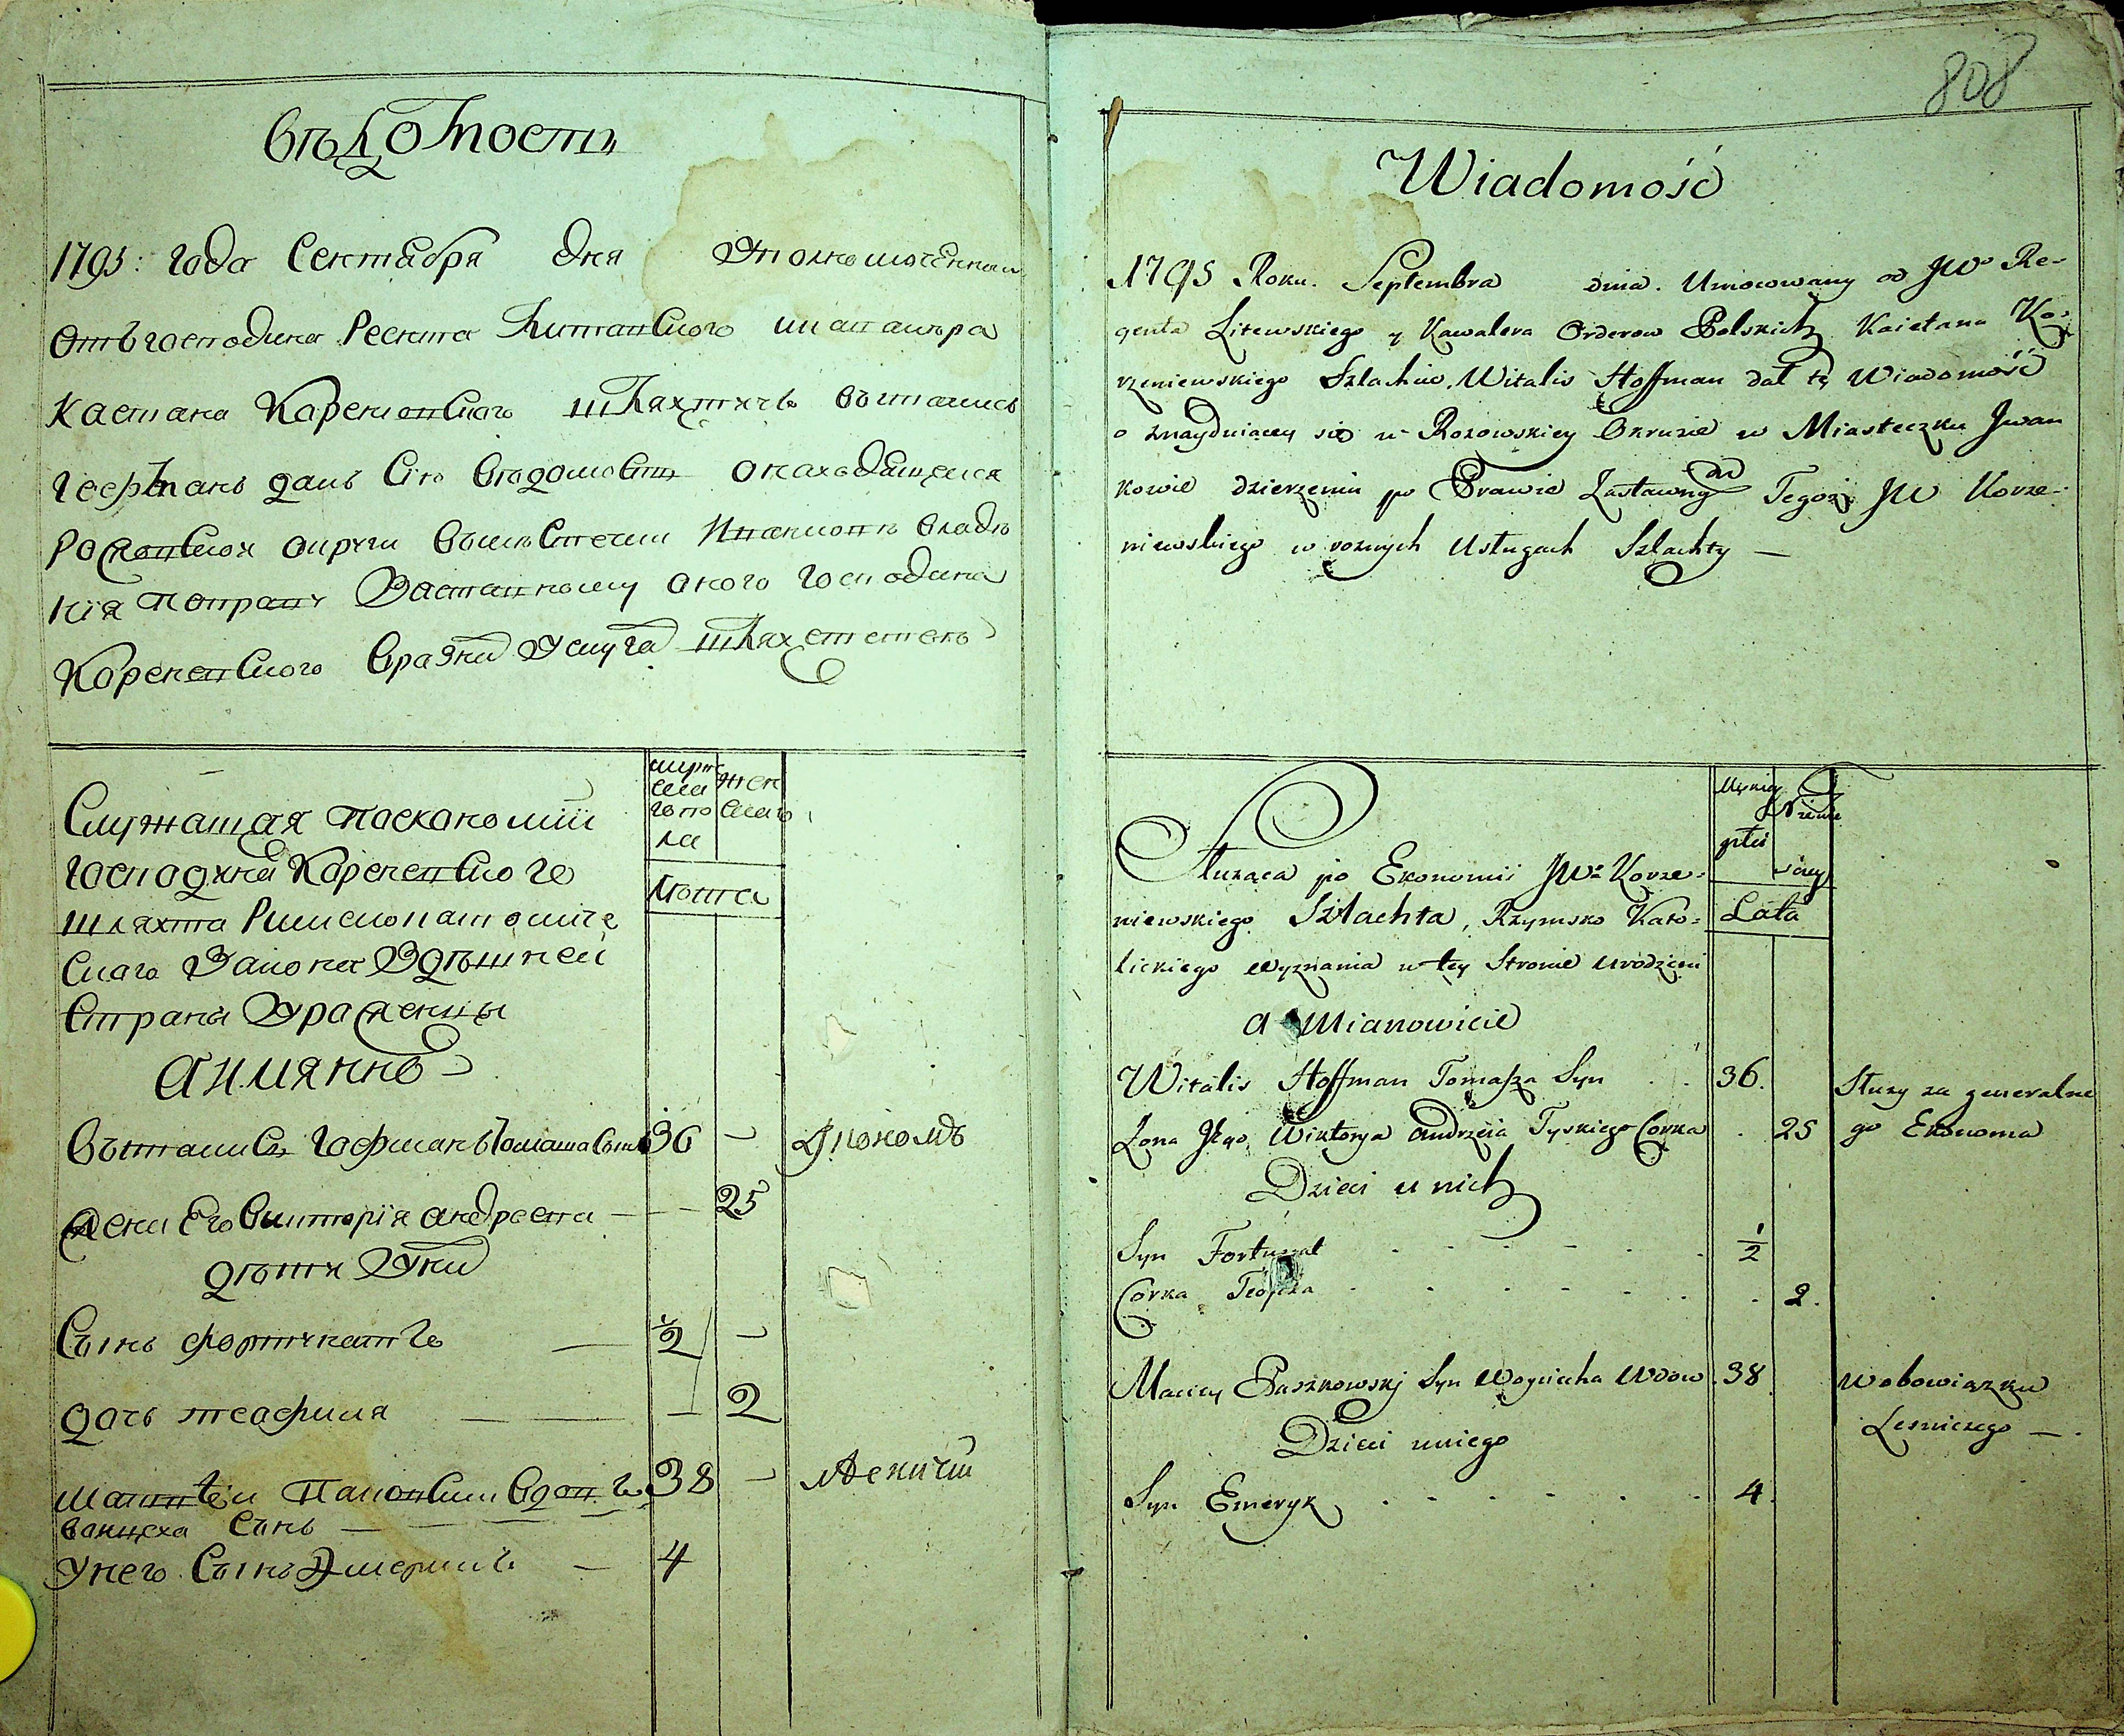 вѣдомость
1795: года Сентября дня Уполномоченный
Отъ господина Реента Литавского и кавалѣра
Каетана Корженевского шляхтичъ Виталисъ
Гофманъ далъ Сію вѣдомость о находящейся
Росковской округи вмѣстечки Ивановѣ владѣ
нія поправу Заставному оного господина
Корженевского вразнй Услуга шляхетствѣ
Служащая поекономіи
господина Корженевского
шляхта Римскокатоличе
скаго Закона Здѣшней
Страны Урожденцы
а имянно
мужеска го пола
женскаго
Лѣта
Виталисъ Гофманъ Томаша сынъ 36 — Экономъ
Жена Его Викторія андреева — — 25
дѣти Уних
Сынъ фортунатъ — ½ —
дочь теофиля — — — 2
Матвѣй Пашковский вдовъ 38 — лѣсничій
Войцеха Сынъ —
Унего Сынъ Эмерикъ — 4
808
Wiadomość
1795 Roku. Septembra dnia. Umocowany od JWo Re-
genta Litewskiego y Kawalera Orderow Polskich Kaietana Ko-
rzeniewskiego Szlachcic. Witalis Hoffman dał tę Wiadomość
o znayduiącey się w Rosowskiey Okruzie w Miasteczku Jwan
kowie dzierzeniu po Prawie Zastawnym Tegoż JW Korze-
niewskiego w roznych Usługach Szlachty —
Służąca po Ekonomii JWo Korze-
niewskiego Szlachta, Rzymsko Kato-
lickiego wyznania w tey Stronie urodzeni
a Mianowicie
Męskiey płci
Lata
Witalis Hoffman Tomasza Syn . . 36. Służy za generalne
Zona Jego Wiktorya Andrzeia Tyskiego Corka . 25 go Ekonoma
Dzieci u nich
Syn Fortunat . . . - . . ½
Corka Teofila . . . . . . . 2.
Maciey Paszkowskj Syn Woyciecha Wdow 38 w obowiązku
Lesniczego —.
Dzieci uniego
Syn Emeryk . . . . . . 4.